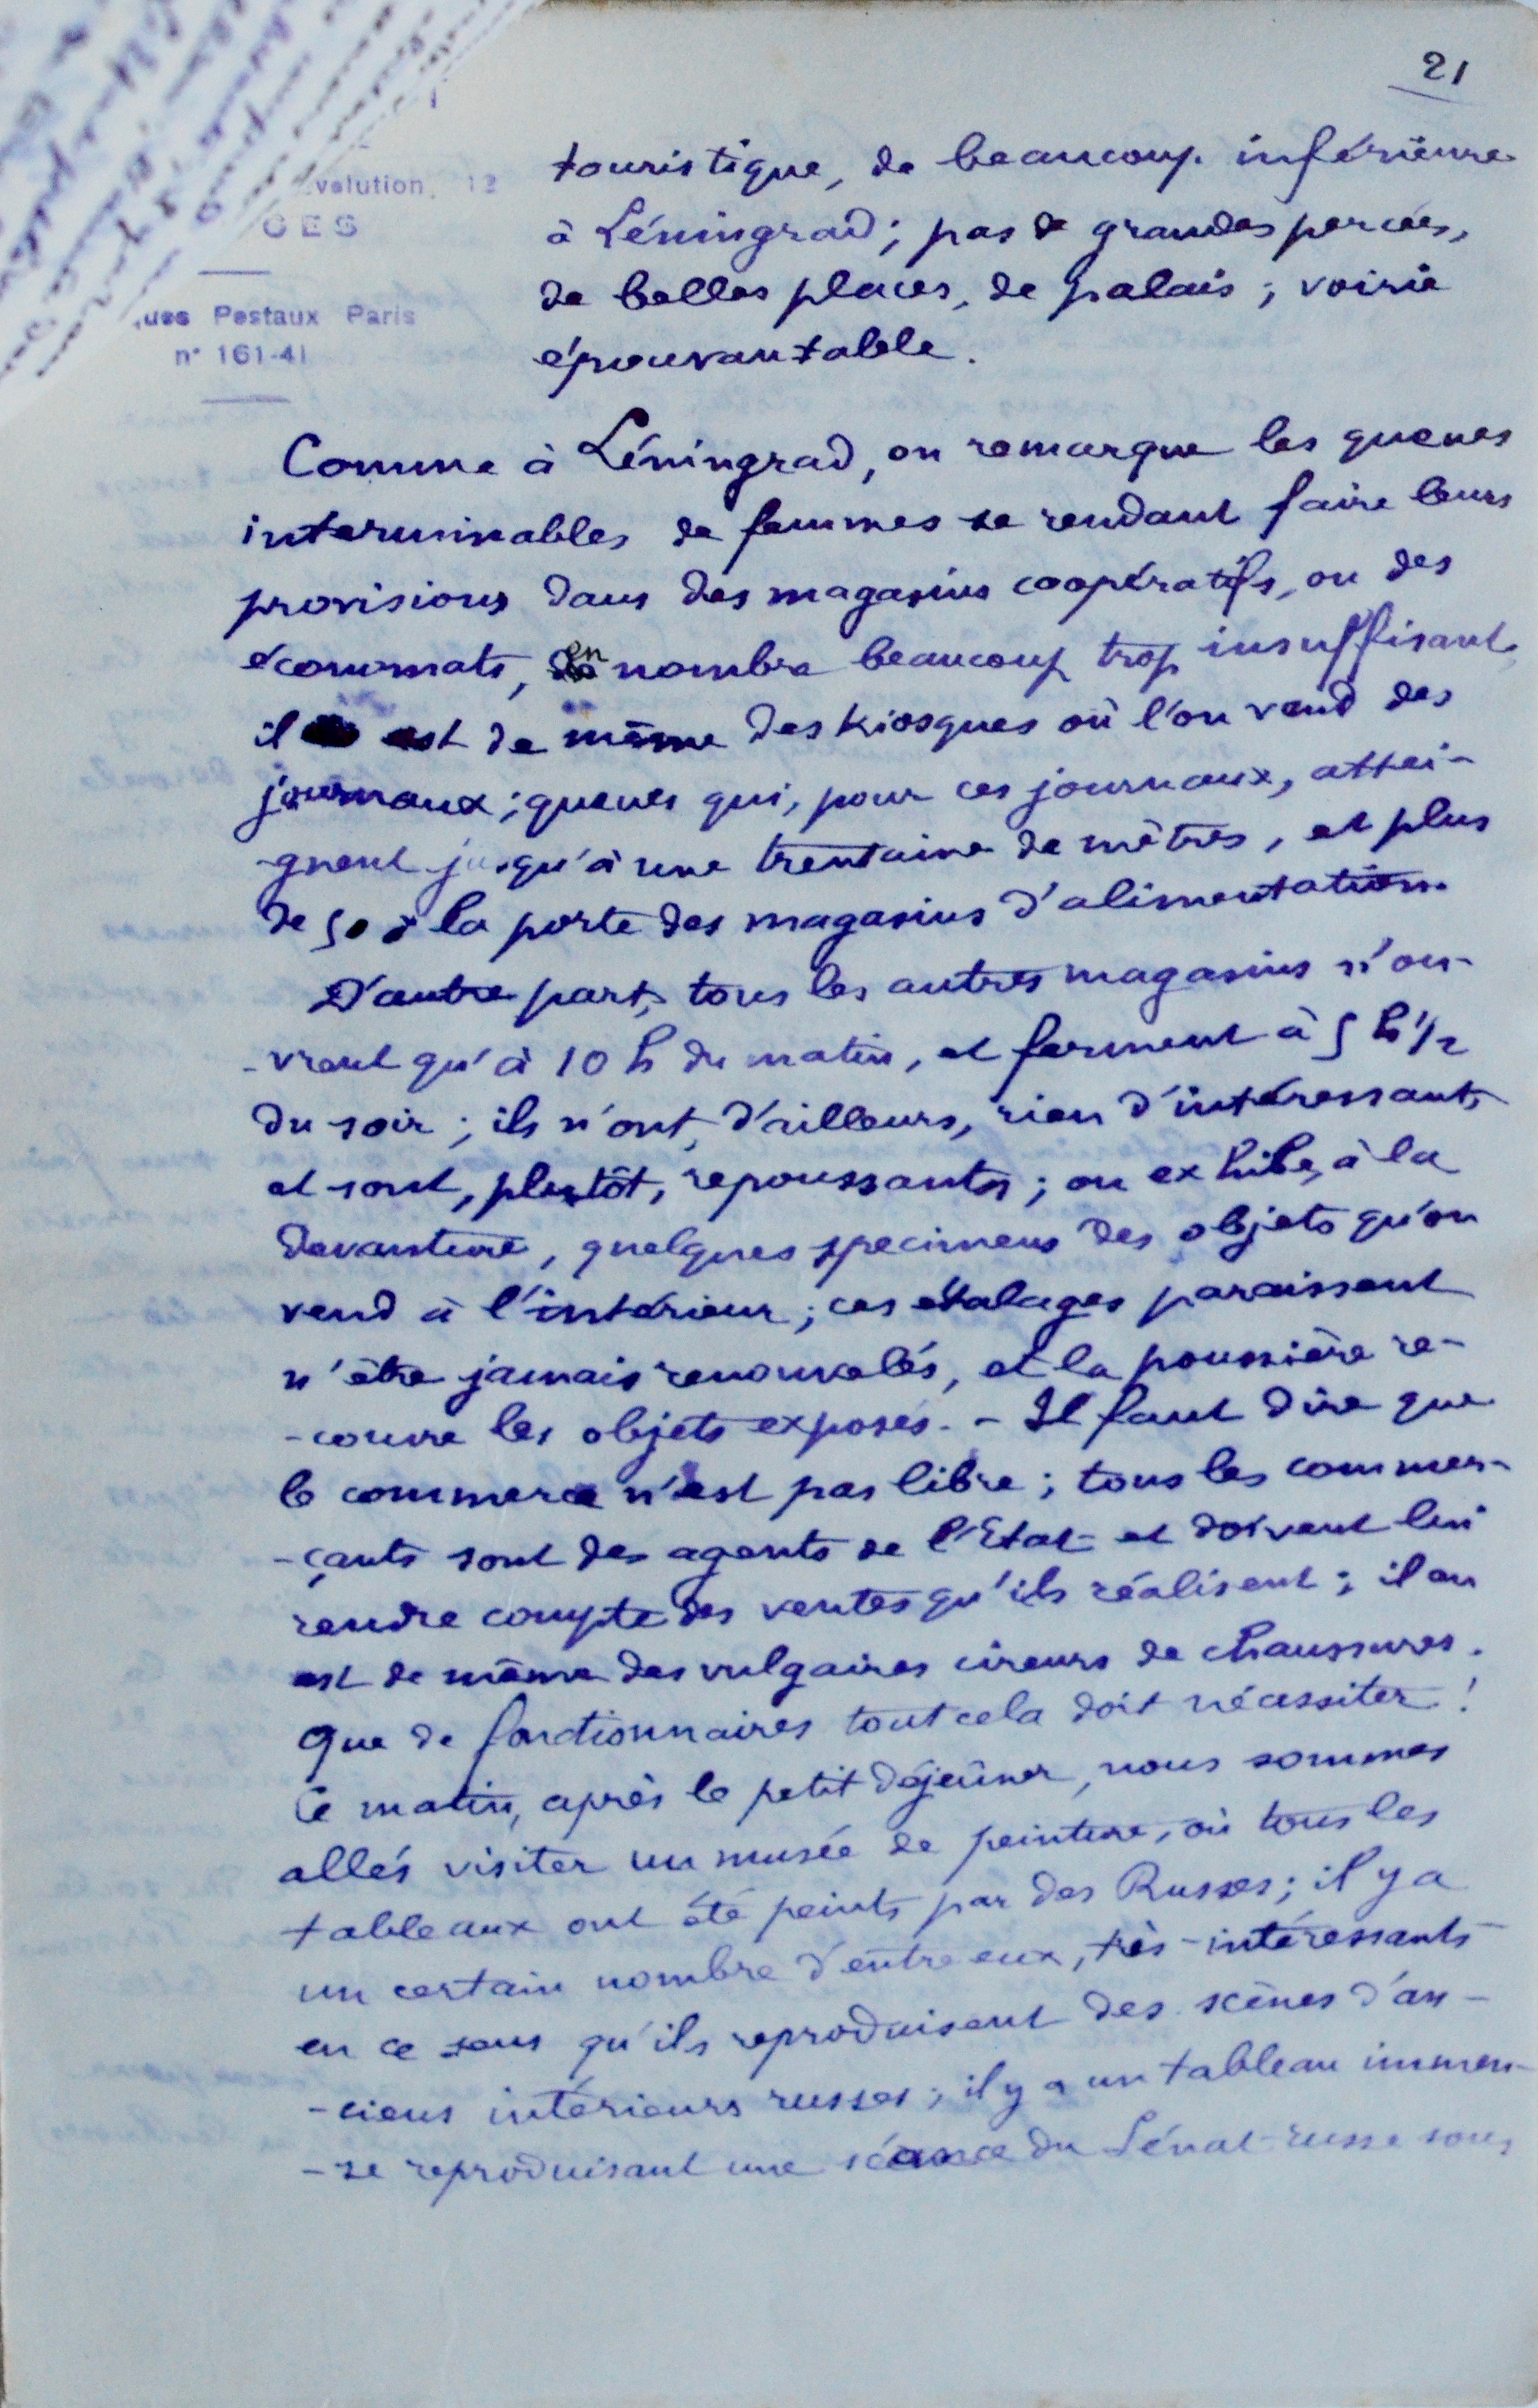 21
évolution, 12
GES
ques Postaux Paris
n° 161-41
touristique, de beaucoup inférieure
à Léningrad ; pas de grandes percées,
de belles places, de palais ; voirie
épouvantable.
Comme à Léningrad, on remarque les queues
interminables de femmes se rendant faire leurs
provisions dans des magasins coopératifs, ou des
économats, en nombre beaucoup trop insuffisant,
il est de même des kiosques où l'on vend des
journaux ; queues qui, pour ces journaux, attei-
-gnent jusqu'à une trentaine de mètres, et plus
de 50 à la porte des magasins d'alimentation.
D'autre part, tous les autres magasins n'ou-
-vrent qu'à 10 h du matin, et ferment à 5 h 1/2
du soir ; ils n'ont, d'ailleurs, rien d'intéressant,
et sont, plutôt, repoussants ; on exhibe, à la
devanture, quelques specimens des objets qu'on
vend à l'intérieur ; ces étalages paraissent
n'être jamais renouvelés, et la poussière re-
-couvre les objets exposés. - Il faut dire que
le commerce n'est pas libre ; tous les commer-
-çants sont des agents de l'Etat et doivent lui
rendre compte des ventes qu'ils réalisent ; il en
est de même des vulgaires cireurs de chaussures.
Que de fonctionnaires tout cela doit nécessiter !
Ce matin, après le petit déjeûner, nous sommes
allés visiter un musée de peinture, où tous les
tableaux ont été peints par des Russes ; il y a
un certain nombre d'entre eux, très-intéressants
en ce sens qu'ils reproduisent des scènes d'an-
-ciens intérieurs russes ; il y a un tableau immen-
-se reproduisant une séance du Sénat russe sous